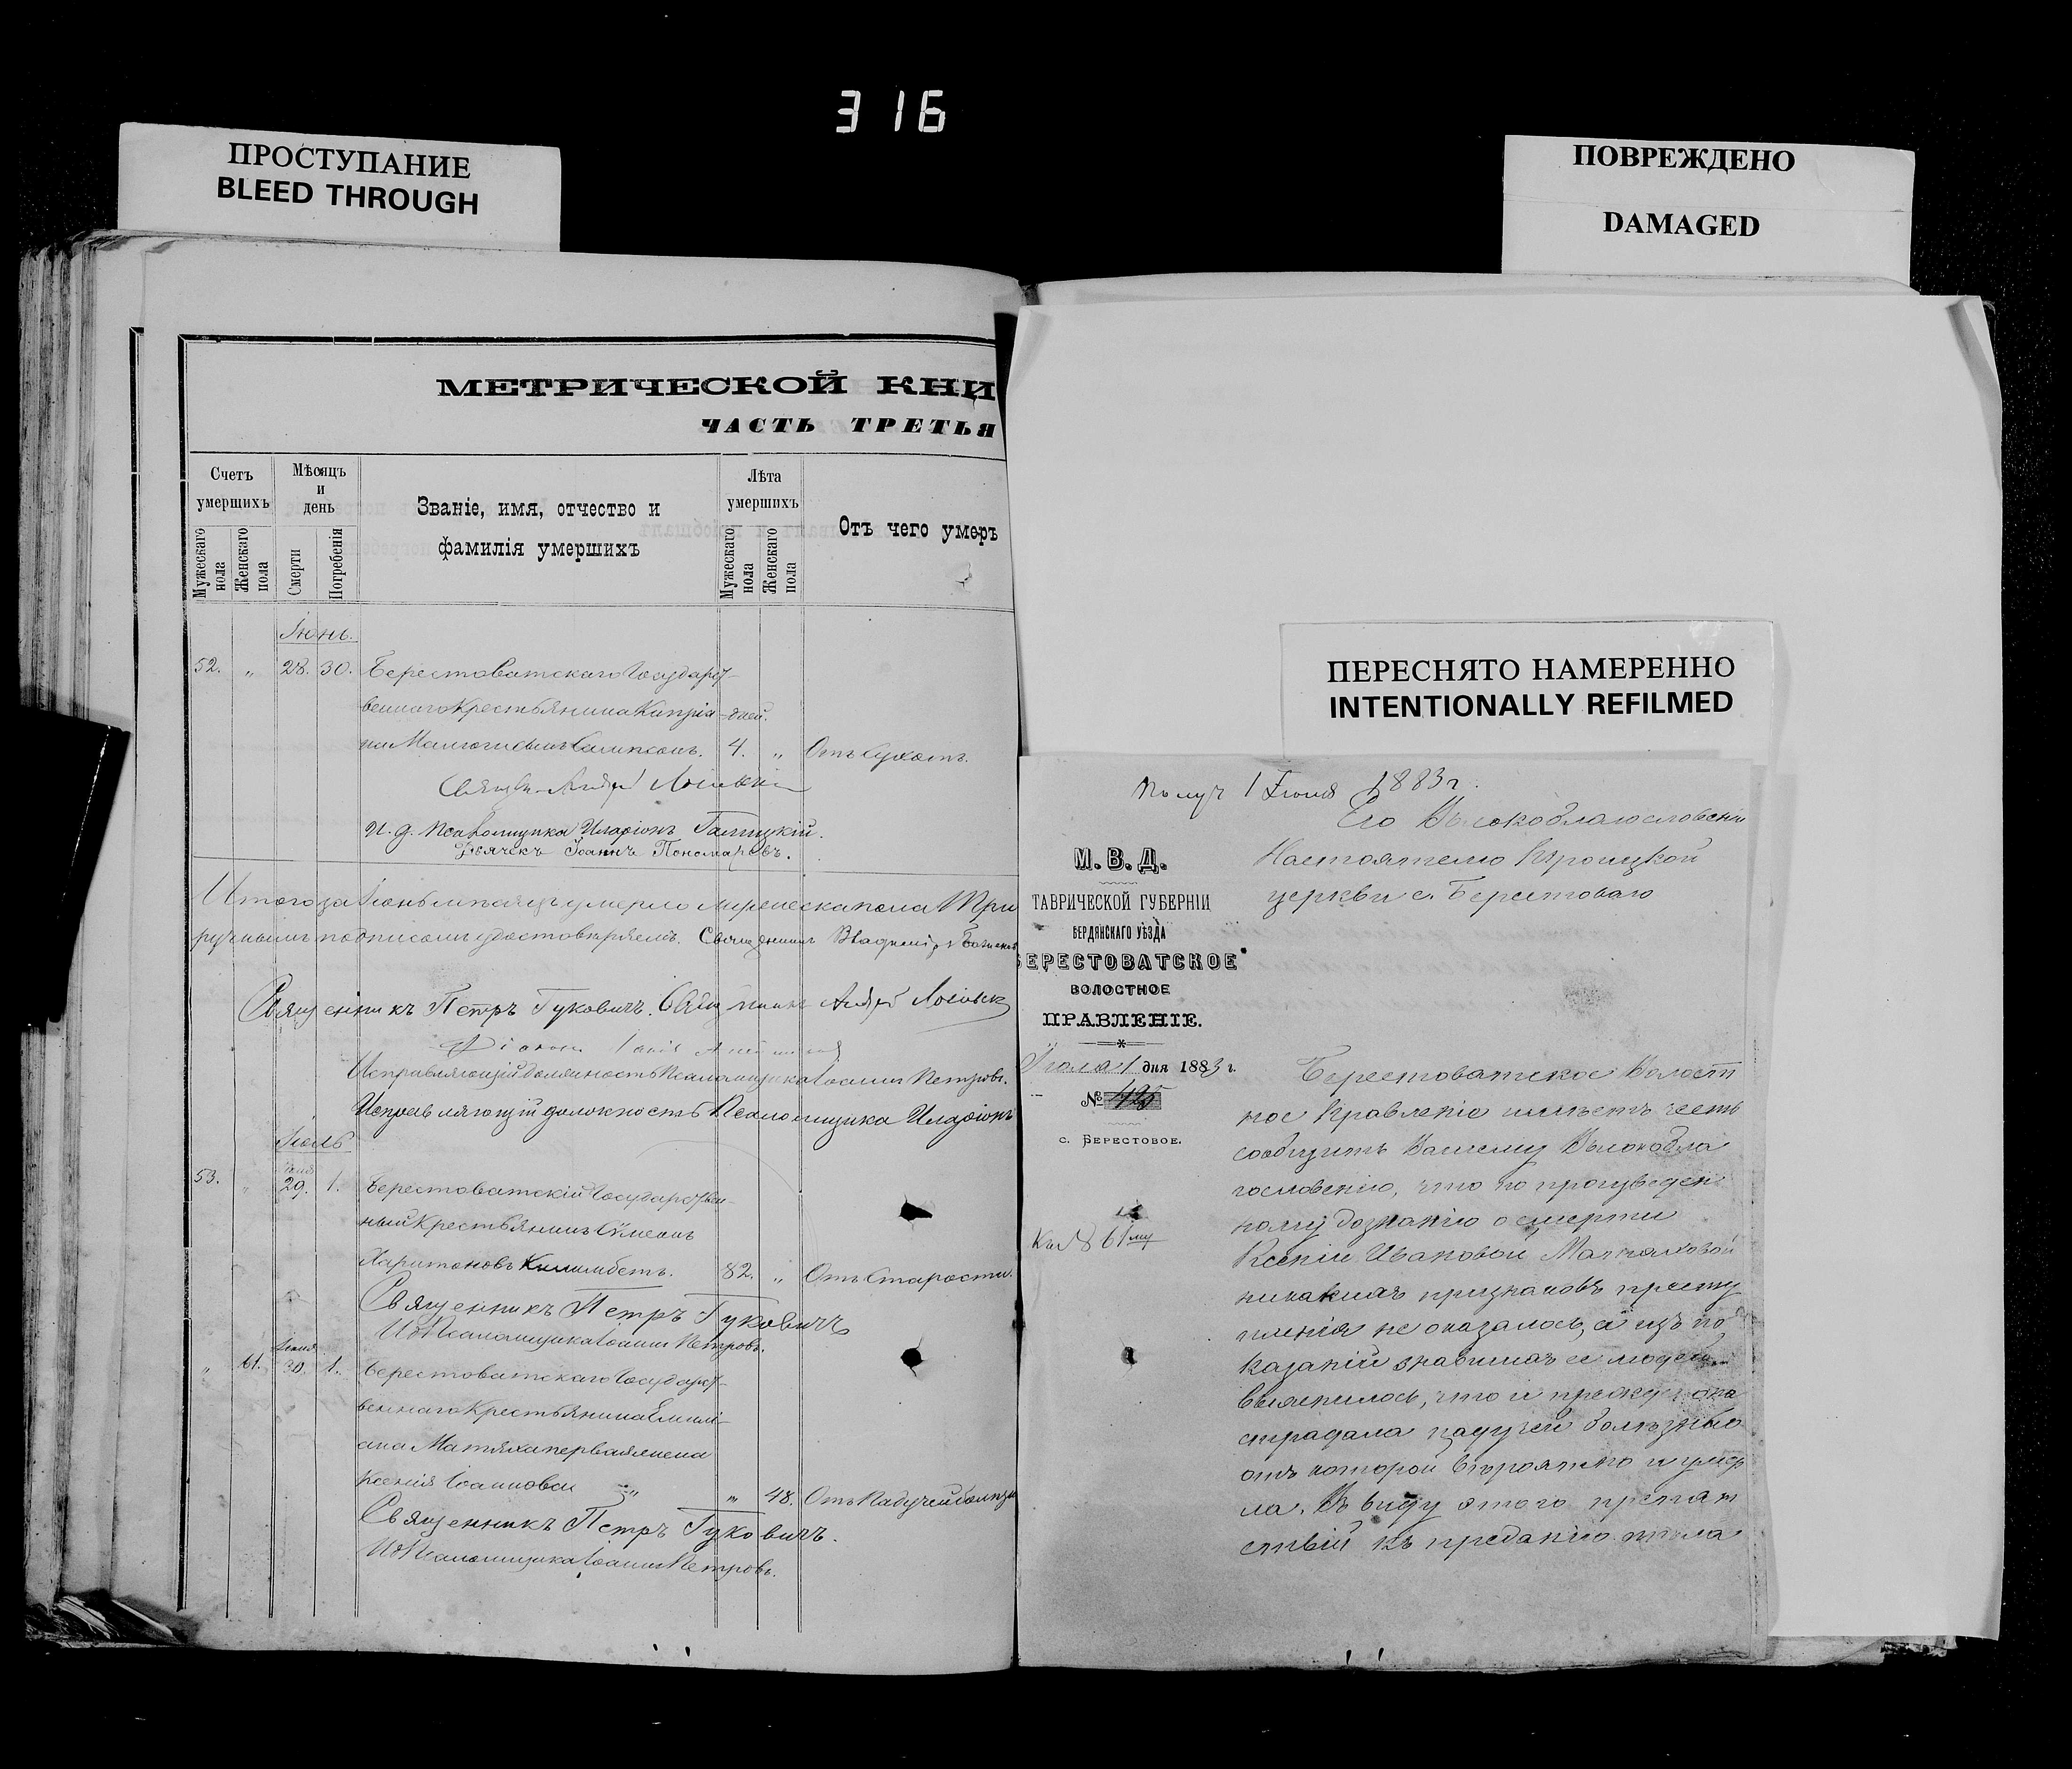 316
ПРОСТУПАНИЕ
BLEED THROUGH
ПОВРЕЖДЕНО
DAMAGED
МЕТРИЧЕСКОЙ КНИ
ЧАСТЬ ТРЕТЬЯ
Счетъ умершихъ
Мужескаго пола
Женскаго пола
Мѣсяцъ и день
Смерти
Погребенія
Званіе, имя, отчество и
фамилія умершихъ
Лѣта умершихъ
Мужескаго пола
Женскаго пола
Отъ чего умеръ
Іюнь.
52. „ 28. 30. Берестоватскаго Государст-
веннаго Крестьянина Кипріа- дней.
на сынъ Сампсонъ. 4. „ Отъ Сухотъ.
Свящ. Андрей
И. д. псаломщика Иларіонъ Галицкій.
Дьячекъ Іоаннъ Пономаревъ.
Итого за Іюнь мѣсяцъ умерло мужеска пола Три
ручнымъ подписомъ удостовѣряемъ. Священникъ Владиміръ
Священникъ Петръ Гуковичъ. Священникъ Андрей
Діаконъ
Исправляющій должность Псаломщика Іоаннъ Петровъ.
Исправляющій должность Псаломщика Иларіонъ
Іюль
53. „ Іюня 29. 1. Берестоватскій Государствен-
ный Крестьянинъ Сѵмеонъ
Харитоновъ Килимбетъ. 82. „ Отъ Старости.
Священникъ Петръ Гуковичъ
ИдПсаломщика Іоаннъ Петровъ.
„ 61. Іюня 30. 1. Берестоватскаго Государст-
веннаго Крестьянина Емилі-
ана Матяха первая жена
Ксенія Іоаннова „ 48. Отъ Падучей болѣзн
Священникъ Петръ Гуковичъ.
ИдПсаломщика Іоаннъ Петровъ.
ПЕРЕСНЯТО НАМЕРЕННО
INTENTIONALLY REFILMED
Получ 1 Іюля 1883 г.
Его Высокоблагословенію
Настоятелю Троицкой
церкви с. Берестоваго
М. В. Д.
ТАВРИЧЕСКОЙ ГУБЕРНІИ
БЕРДЯНСКАГО УѢЗДА
БЕРЕСТОВАТСКОЕ
ВОЛОСТНОЕ
ПРАВЛЕНІЕ.
Іюля 1 дня 1883 г.
№ 425
с. БЕРЕСТОВОЕ.
Къ № 61му
Берестоватское Волост
ное Правленіе имѣетъ честь
сообщить Вашему Высокобла
гословенію, что по произведен
ному дознанію о смерти
Ксеніи Ивановой Матяховой
никакихъ признаковъ престу
пленія не оказалось, а изъ по
казаній знавшихъ ее людей
выяснилось, что и прежде она
страдала падучей болѣзнью
отъ которой вѣроятно и умер
ла. Въ виду этого препят
ствій къ преданію тѣла